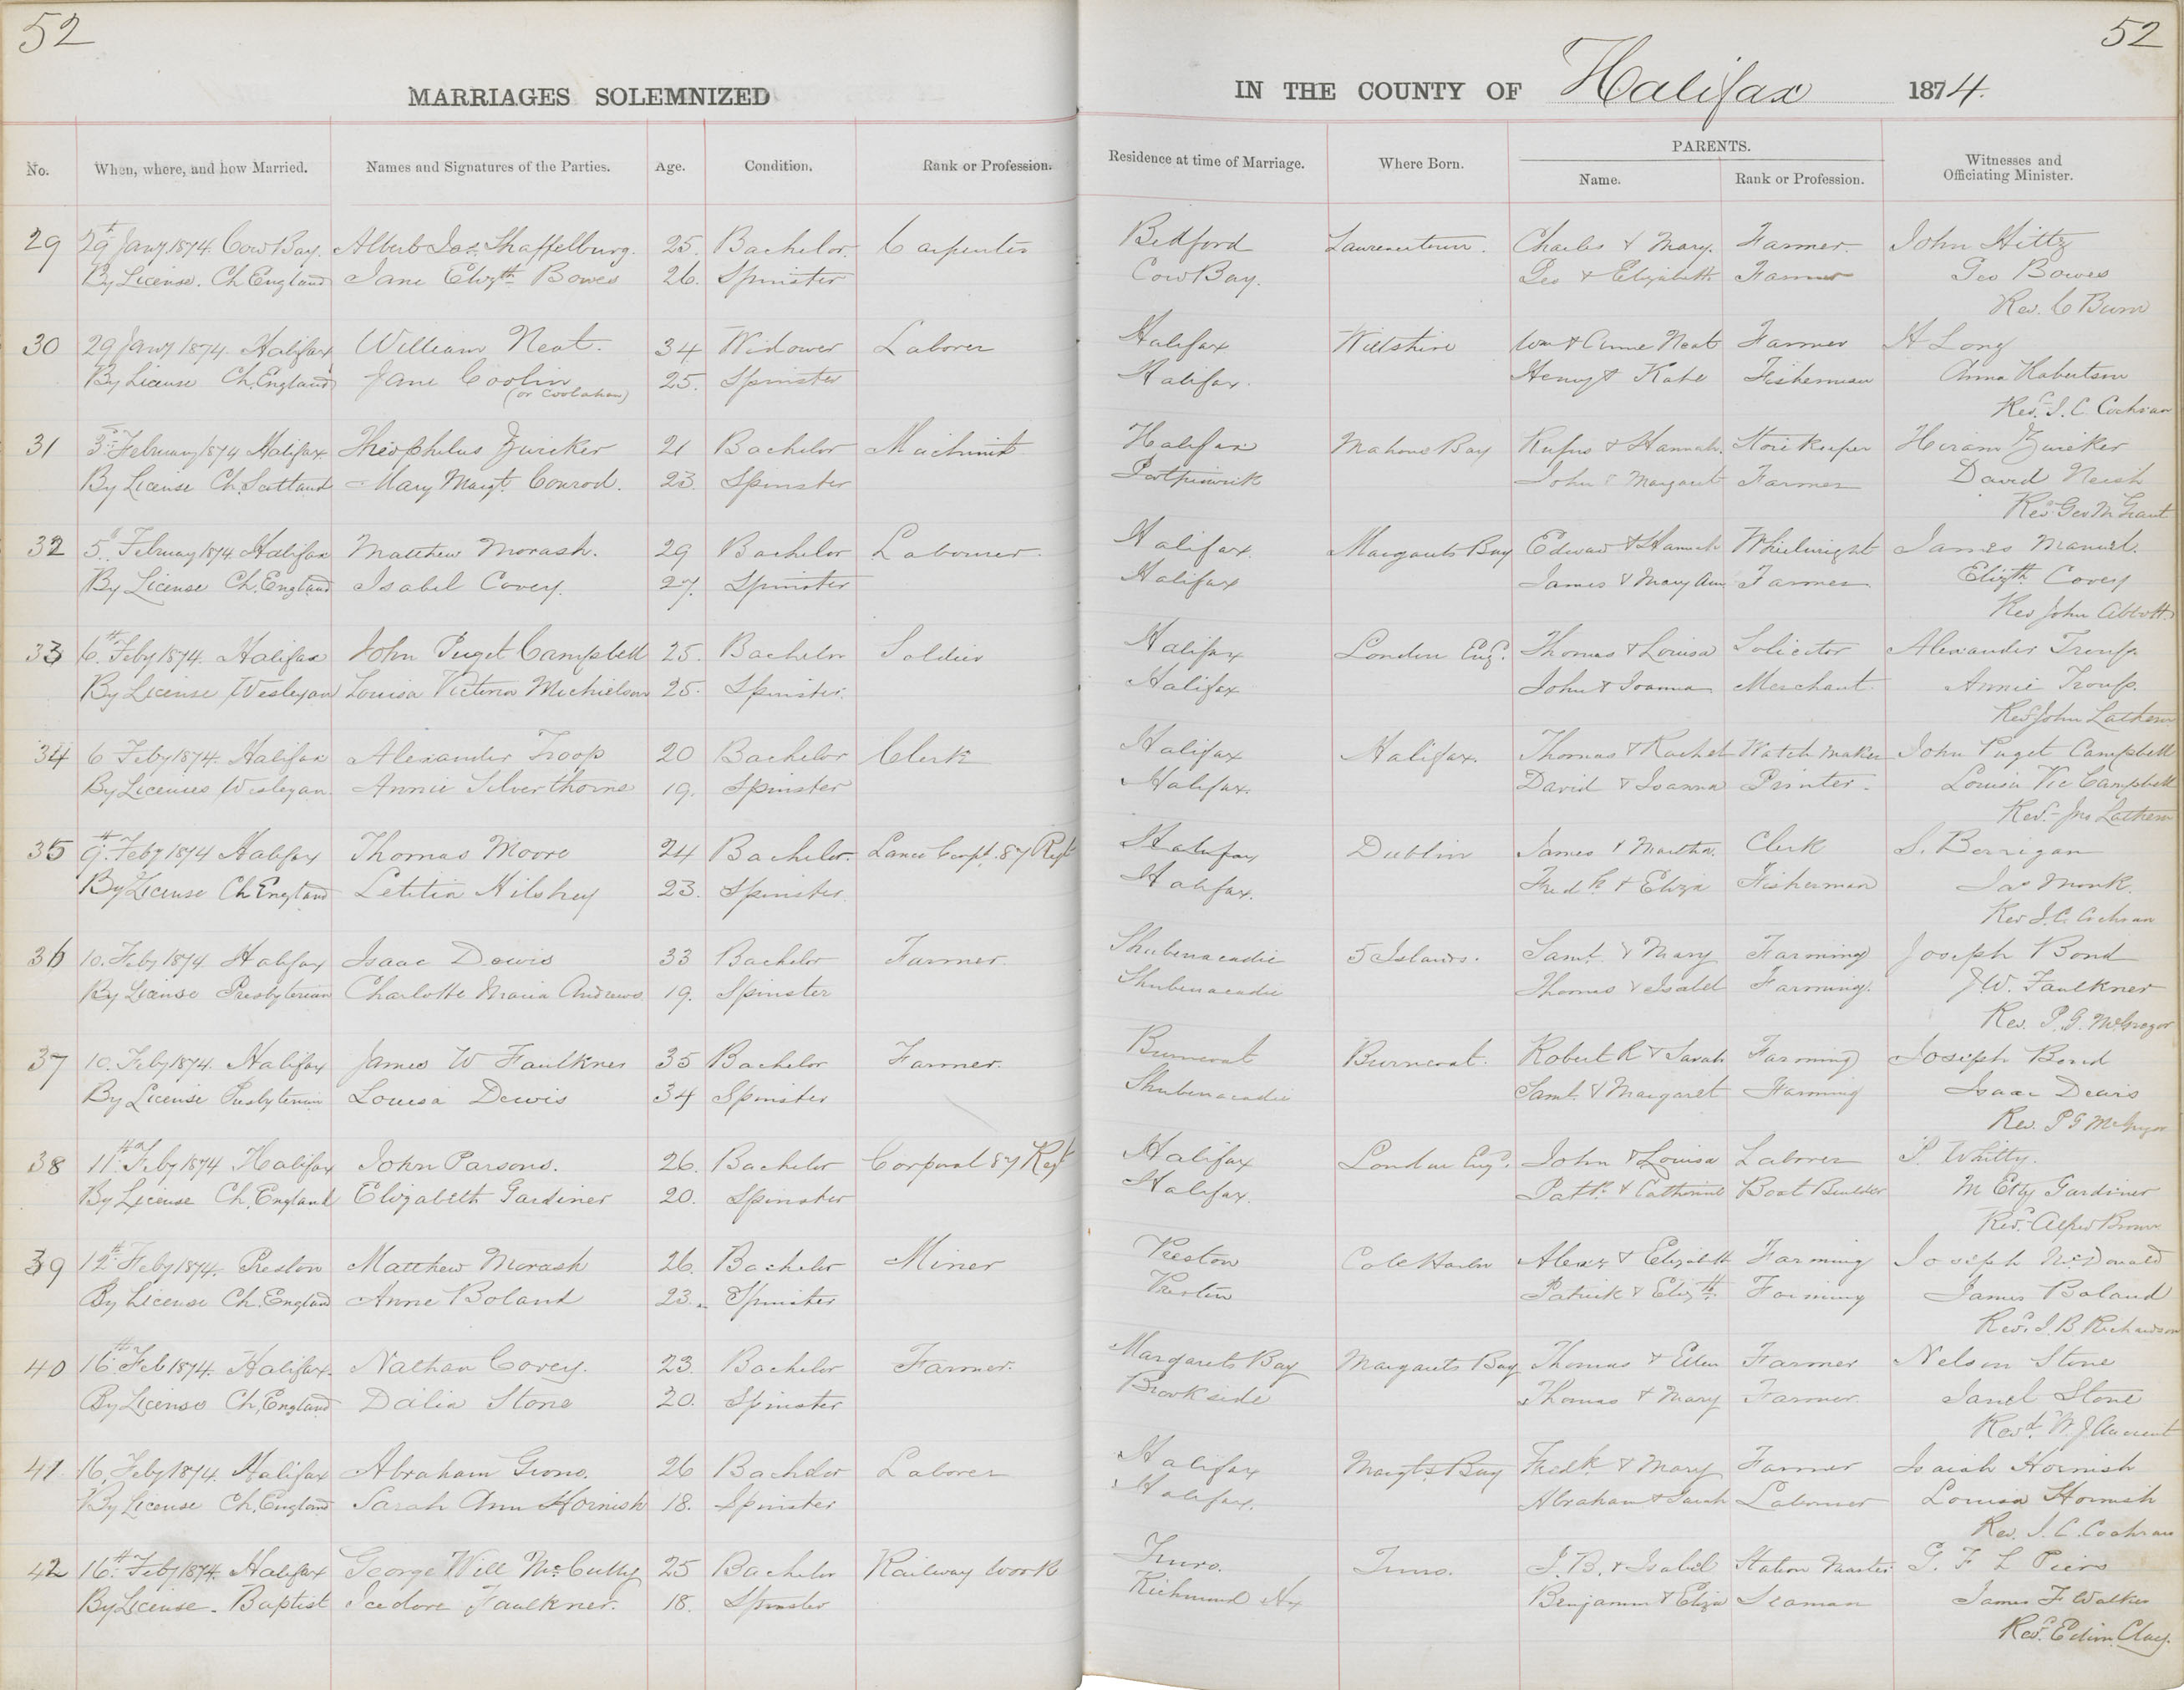 52
52
MARRIAGES SOLEMNIZED
IN THE COUNTY OF Halifax 1874.
No. When, where, and how Married. Names and Signatures of the Parties. Age. Condition. Rank or Profession. Residence at time of Marriage. Where Born. PARENTS. Name. Rank or Profession. Witnesses and Officiating Minister.
29 29th Jany 1874. Cow Bay. Albert Jas. Shaffelburg. 25. Bachelor. Carpenter Bedford Lawrencetown. Charles & Mary. Farmer. John Hiltz
By License. Ch England Jane Elizth Bowes 26. Spinster Cow Bay. Geo & Elizabeth Farmer Geo Bowes
Rev. C Burn
30 29 Jany 1874. Halifax William Neat. 34 Widower Laborer Halifax Wiltshire Wm & Anne Neat Farmer H Long
By License Ch. England Jane Coolin (or Coolahan) 25. Spinster Halifax. Henry & Kate Fisherman Anna Robertson
Revd. J. C. Cochran
31 3rd February 1874 Halifax. Theophilus Zwicker 21 Bachelor Machinist Halifax Mahone Bay Rufus & Hannah. Store Keeper Hiram Zwicker
By License Ch. Scotland Mary Margt. Conrod. 23. Spinster John & Margaret Farmer David Neish
Revd Geo M Grant
32 5th February 1874. Halifax Matthew Morash. 29 Bachelor Labourer. Halifax. Margarets Bay Edward & Hannah Wheelwright James Manuel.
By License Ch. England Isabel Covey. 27. Spinster Halifax James & Mary Ann Farmer Elizth Covey
Rev John Abbott
33 6th Feby 1874. Halifax John Puget Campbell 25. Bachelor Soldier Halifax London Eng. Thomas & Louisa Solicitor Alexander Troup
By License Wesleyan Louisa Victoria Michielson 25. Spinster. Halifax John & Joanna Merchant. Annie Troup.
Revd John Lathern
34 6 Feby 1874. Halifax Alexander Troop 20 Bachelor Clerk Halifax Halifax. Thomas & Rachel Watch maker John Puget Campbell
By Licenses Wesleyan Annie Silverthorne 19. Spinster Halifax. David & Joanna Printer. Louisa Vic Campbell
Revd. Jno Lathern
35 9th. Feby 1874 Halifax Thomas Moore 24 Bachelor. Lance Corpl. 87 Regt Halifax Dublin James & Martha. Clerk S. Berrigan
By License Ch England Letitia Hilshey 23. Spinster. Halifax. Fredk & Eliza Fisherman Jas Monk.
Rev J. C. Cochran
36 10. Feby 1874 Halifax Isaac Dewis 33 Bachelor Farmer. Shubenacadie 5 Islands. Saml. & Mary Farming Joseph Bond
By License Presbyterian Charlotte Maria Andrews. 19. Spinster Shubenacadie Thomas & Isabel Farming. J. W. Faulkner
Rev. P. G. McGregor
37 10. Feby 1874. Halifax James W Faulkner 35 Bachelor Farmer. Burncoat Burncoat. Robert R & Sarah Farming Joseph Bond
By License Presbyterian Louisa Dewis 34 Spinster Shubenacadie Saml. & Margaret Farming Isaac Dewis
Rev. P G McGregor
38 11th Feby 1874 Halifax John Parsons. 26. Bachelor Corporal 87 Regt Halifax London Eng. John & Louisa Laborer P. Whitty.
By License Ch. England Elizabeth Gardiner 20. Spinster Halifax. Patk. & Catherine Boat Builder M Etty Gardiner
Revd. Alfred Brown
39 12th Feby 1874. Preston Matthew Morash 26. Bachelor Miner Preston Cole Harbor Alexr & Elizabeth Farming Joseph McDonald
By License Ch. England Anne Boland 23. Spinster Preston Patrick & Elizth. Farming James Boland
Revd. J. B. Richardson
40 16th Feb 1874. Halifax. Nathan Covey. 23. Bachelor Farmer. Margarets Bay Margarets Bay Thomas & Ellen Farmer Nelson Stone
By License Ch. England Dalia Stone 20. Spinster Brookside Thomas & Mary Farmer. Janet Stone
Revd. W. J Ancient
41 16. Feby 1874. Halifax Abraham Grono. 26 Bachelor Laborer Halifax Margts. Bay Fredk. & Mary Farmer Isaiah Hornish
By License Ch. England Sarah Ann Hornish 18. Spinster Halifax. Abraham & Sarah Labourer Louisa Hornish
Rev. J. C. Cochran
42 16th. Feby 1874. Halifax George Will McCully 25 Bachelor Railway work Truro. Truro. J. B. & Isabel Station Master G. F L Peirs
By License. Baptist Icedore Faulkner. 18. Spinster Richmond Hx Benjamin & Eliza Seaman James F Walker
Revd. Edwin Clay.